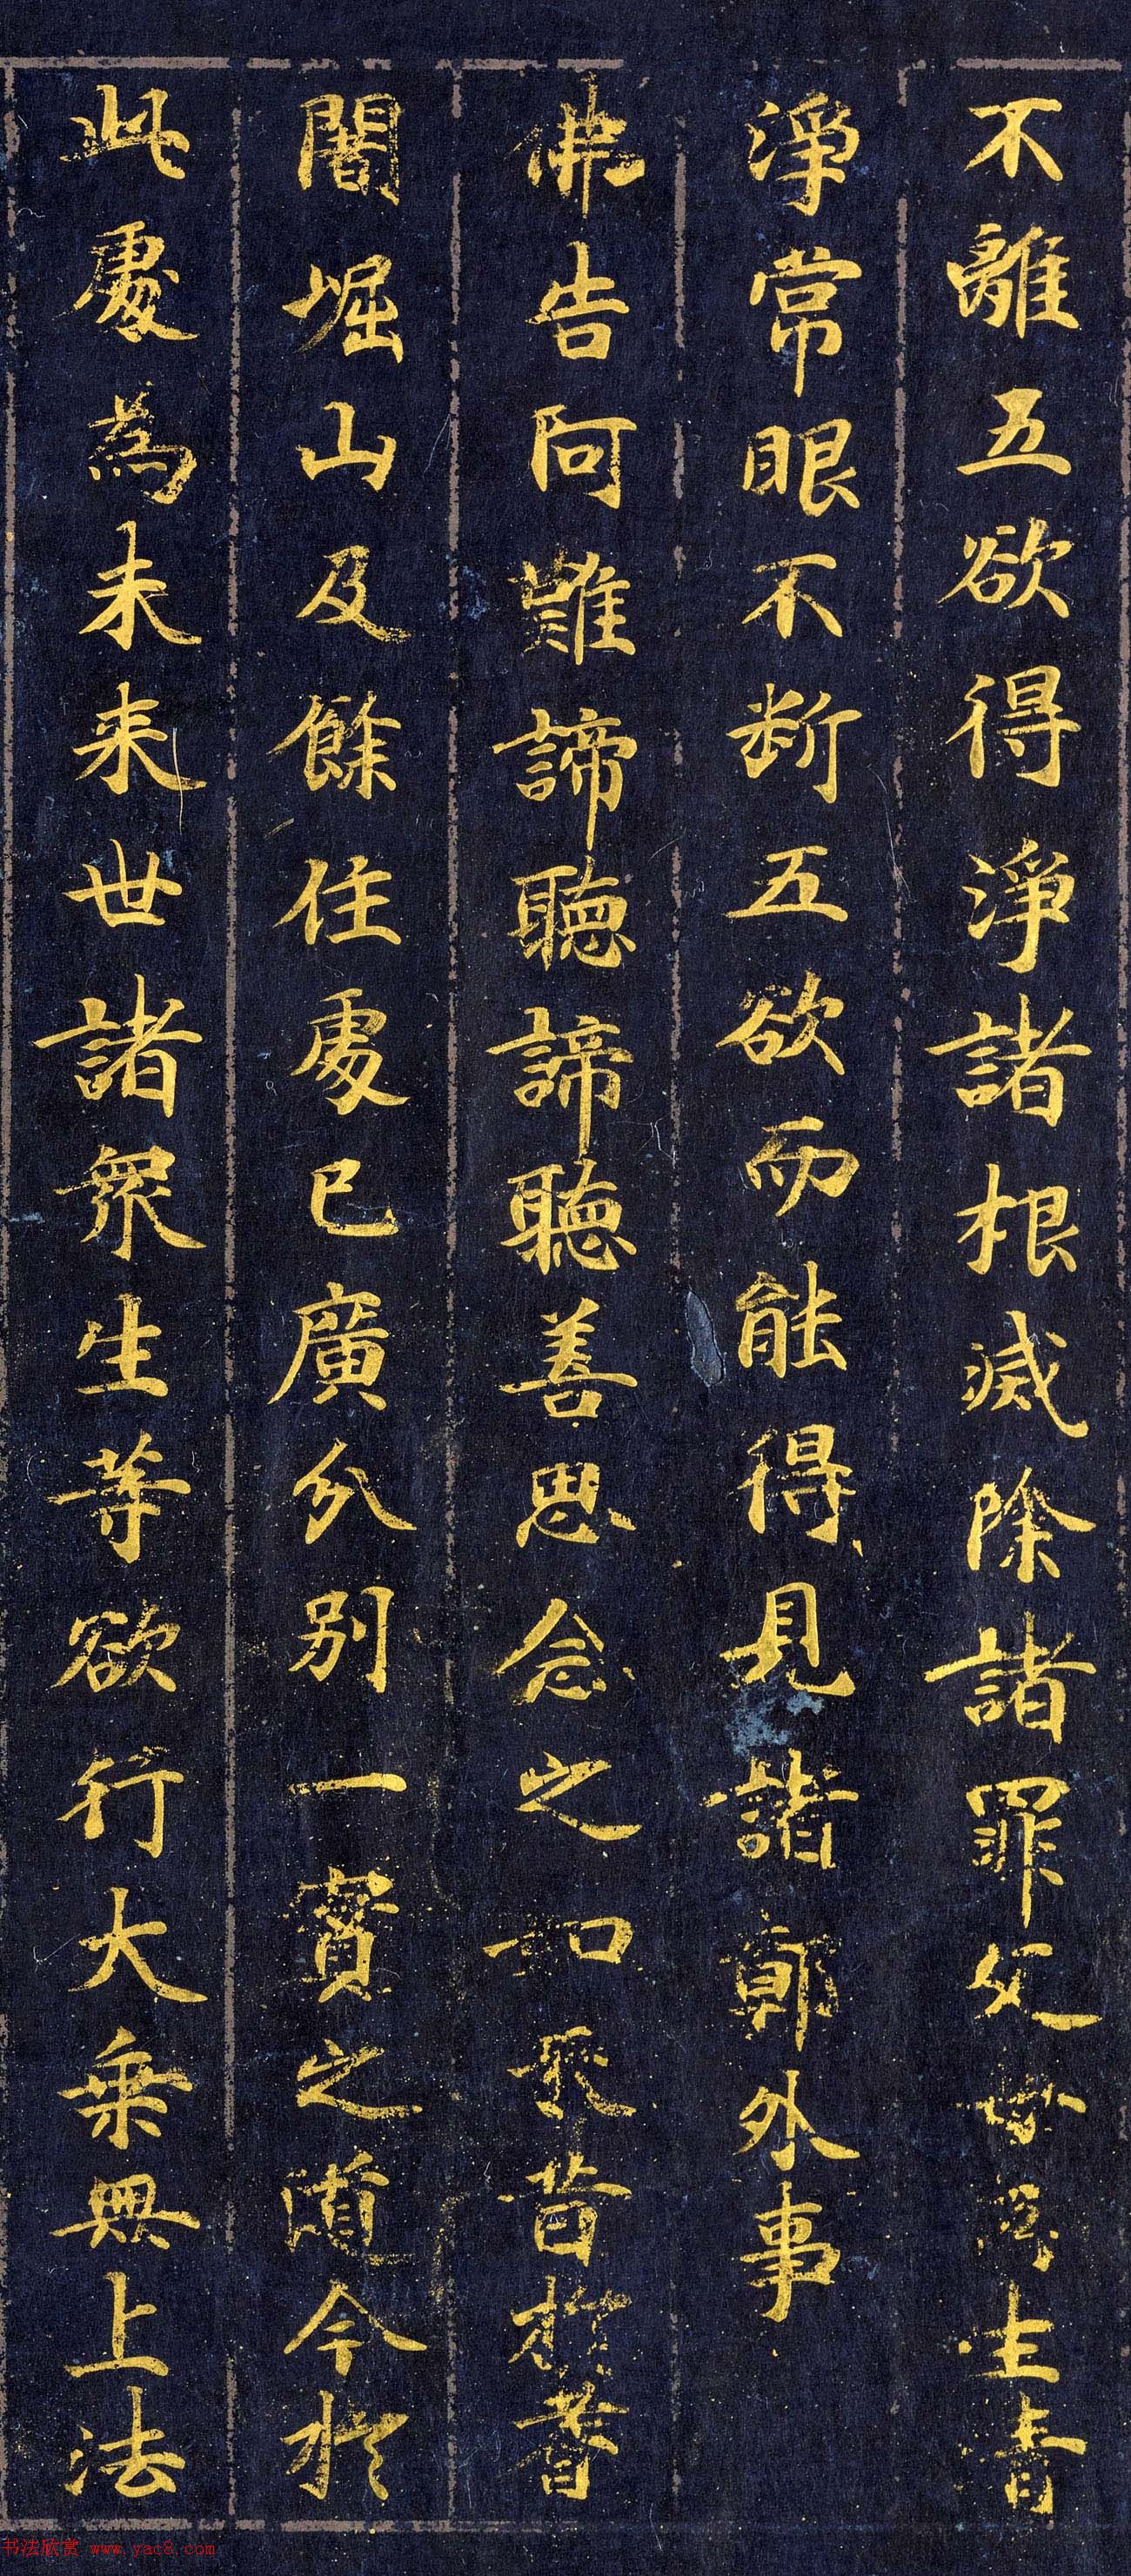 不離五欲得淨諸根滅除諸罪父母所生清
淨常眼不断五欲而能得見諸鄣外事
佛告阿難諦聽諦聽善思念之如来昔於耆
闍堀山及餘住處已廣分別一實之道今於
此處為未来世諸眾生等欲行大乗無上法
书法欣赏 www.yac8.com